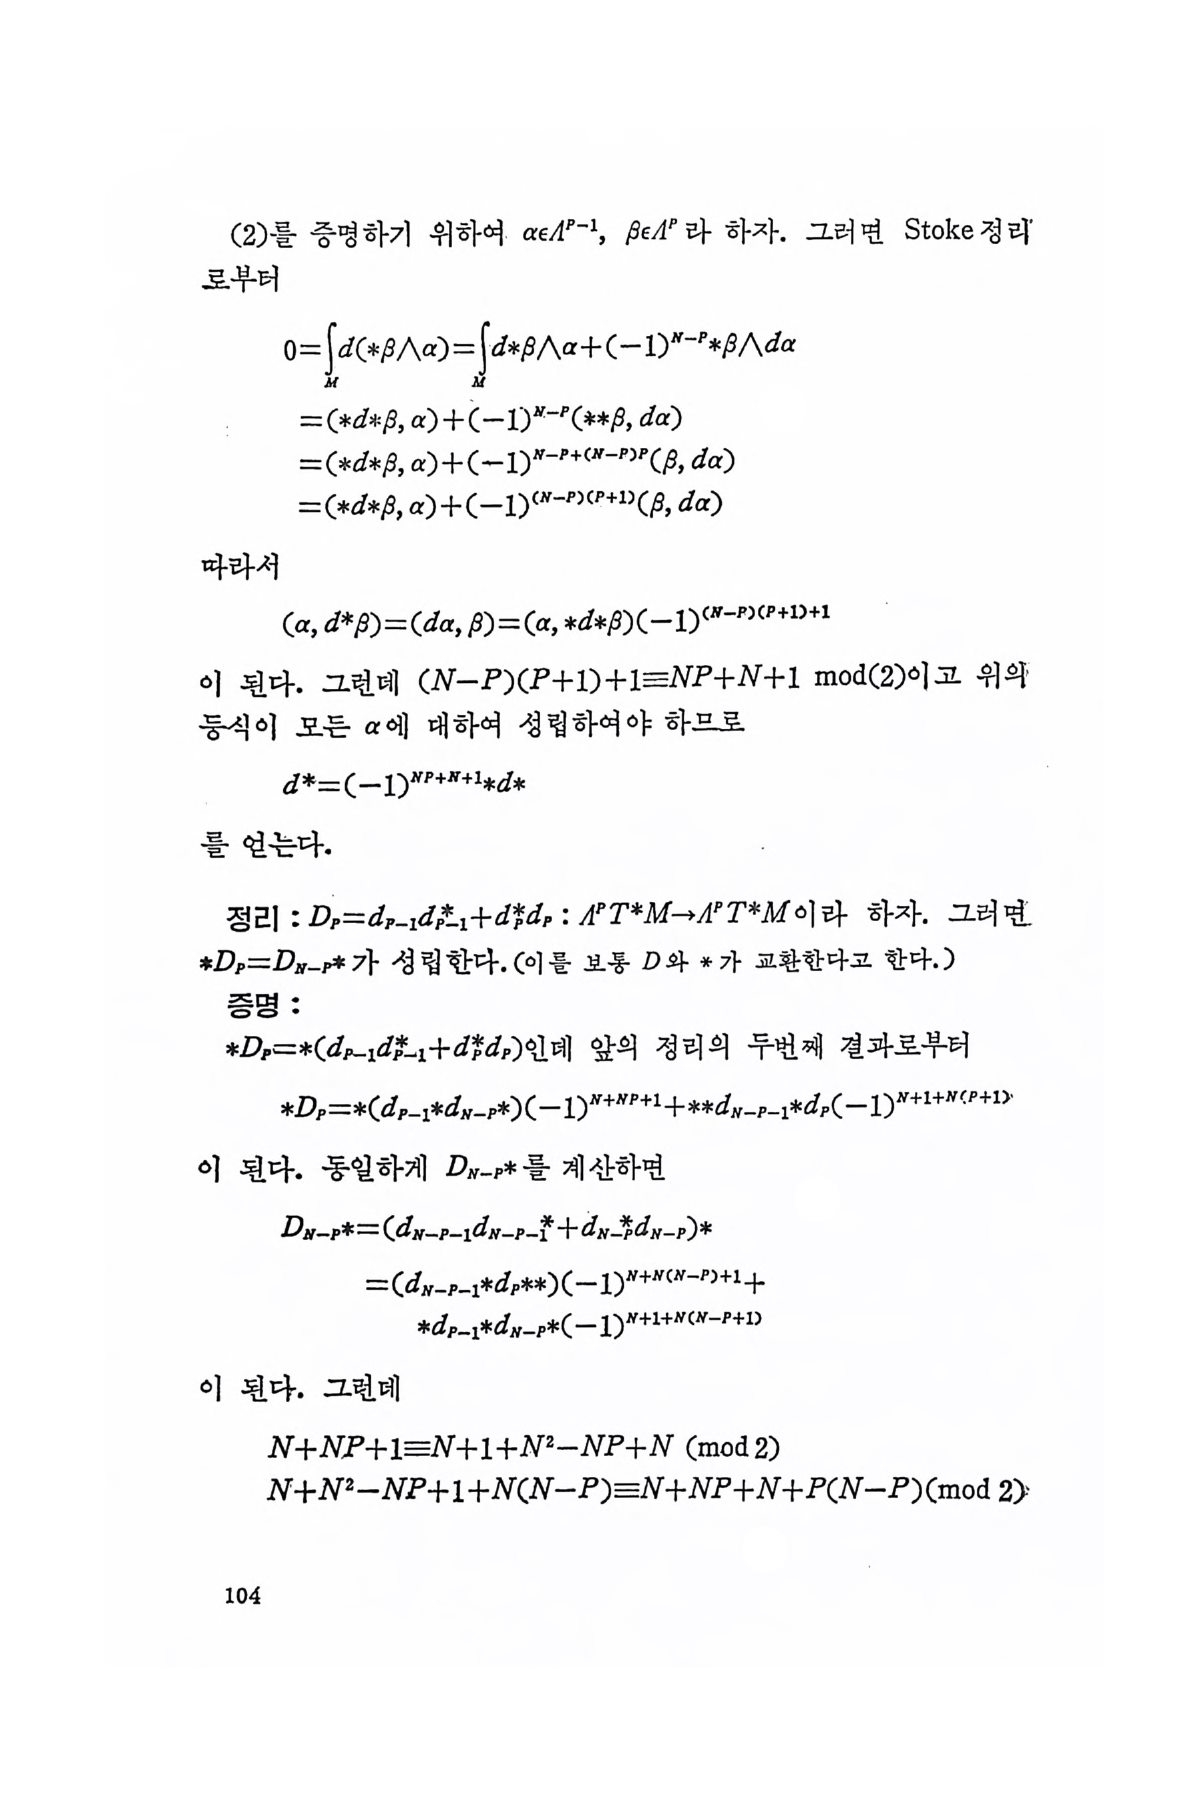 (2)를 증명하기 위하여 αϵΛᴾ⁻¹, βϵΛᴾ라 하자. 그러면 Stoke정리
로부터
0=∫_M d(*β∧α)=∫_M d*β∧α+(−1)^{N−P}*β∧dα
=(*d*β, α)+(−1)^{N−P}(**β, dα)
=(*d*β, α)+(−1)^{N−P+(N−P)P}(β, dα)
=(*d*β, α)+(−1)^{(N−P)(P+1)}(β, dα)
따라서
(α, d*β)=(dα, β)=(α, *d*β)(−1)^{(N−P)(P+1)+1}
이 된다. 그런데 (N−P)(P+1)+1≡NP+N+1 mod(2)이고 위의
등식이 모든 α에 대하여 성립하여야 하므로
d*=(−1)^{NP+N+1}*d*
를 얻는다.
정리 : D_P=d_{P−1}d*_{P−1}+d*_Pd_P : Λ^PT*M→Λ^PT*M이라 하자. 그러면
*D_P=D_{N−P}*가 성립한다.(이를 보통 D와 *가 교환한다고 한다.)
증명 :
*D_P=*(d_{P−1}d*_{P−1}+d*_Pd_P)인데 앞의 정리의 두번째 결과로부터
*D_P=*(d_{P−1}*d_{N−P}*)(−1)^{N+NP+1}+**d_{N−P−1}*d_P(−1)^{N+1+N(P+1)}
이 된다. 동일하게 D_{N−P}*를 계산하면
D_{N−P}*=(d_{N−P−1}d*_{N−P−1}+d*_{N−P}d_{N−P})*
=(d_{N−P−1}*d_P**)(−1)^{N+N(N−P)+1}+
*d_{P−1}*d_{N−P}*(−1)^{N+1+N(N−P+1)}
이 된다. 그런데
N+NP+1≡N+1+N²−NP+N (mod 2)
N+N²−NP+1+N(N−P)≡N+NP+N+P(N−P)(mod 2)
104